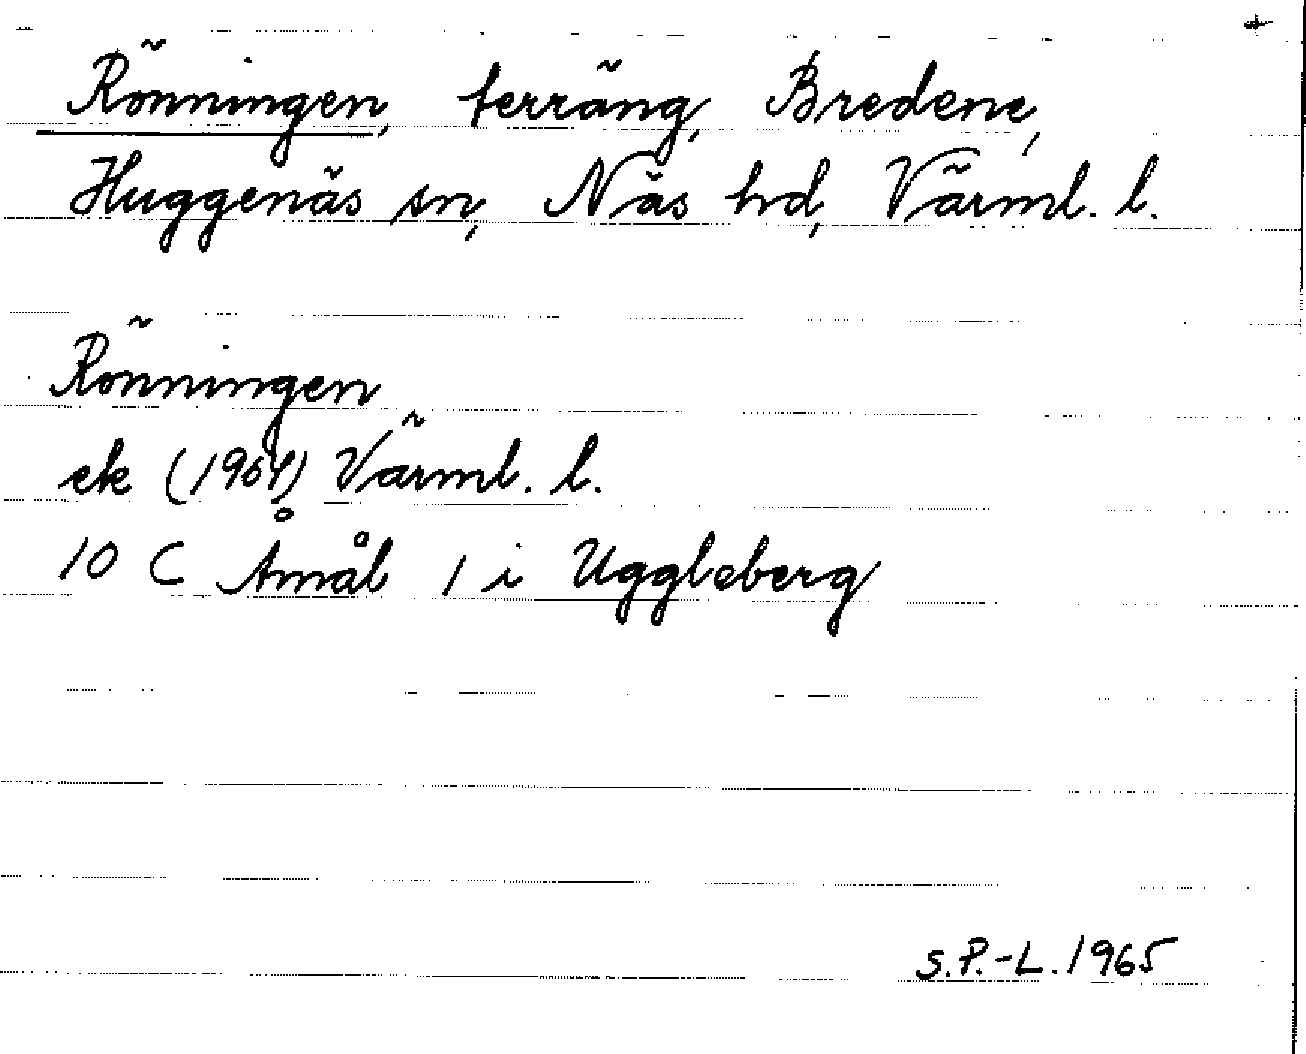 +
Rönningen, terräng, Bredene,
Huggenäs sn, Näs hd, Värml. l.
Rönningen
ek (1964) Värml. l.
10 C Åmål 1 i Uggleberg
S.P.-L. 1965